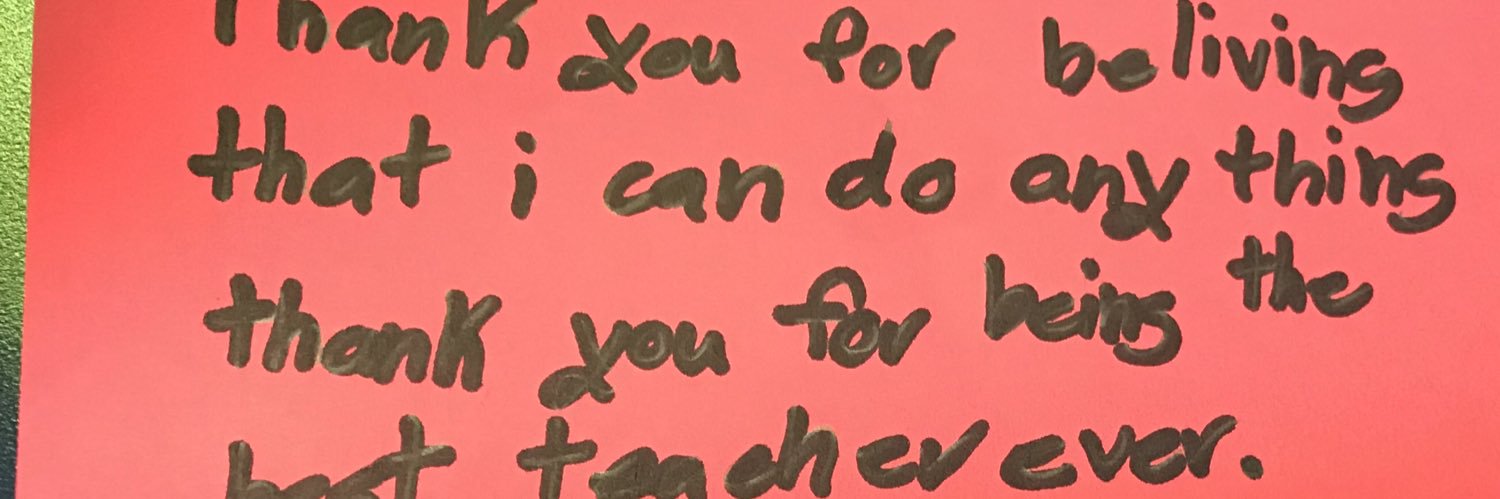 Thank you for beliving
that i can do any thing
thank you for being the
best teacher ever.